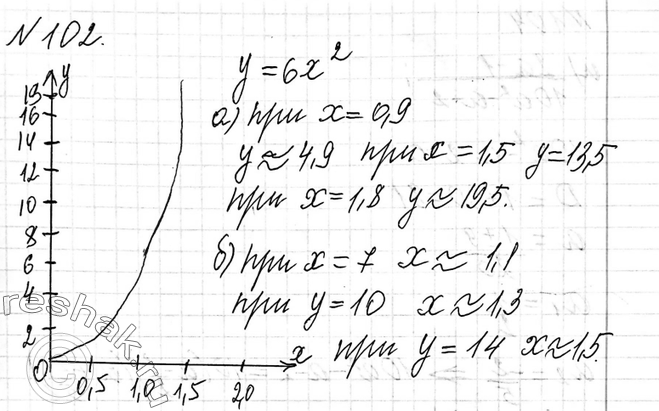 N 102.
y = 6x²
а) при x = 0,9
y ≈ 4,9 при x = 1,5 y = 13,5
при x = 1,8 y ≈ 19,5.
б) при x = 7 x ≈ 1,1
при y = 10 x ≈ 1,3
при y = 14 x ≈ 1,5.
y
19
16
14
12
10
8
6
4
2
0 0,5 1,0 1,5 2,0 x
reshak.ru